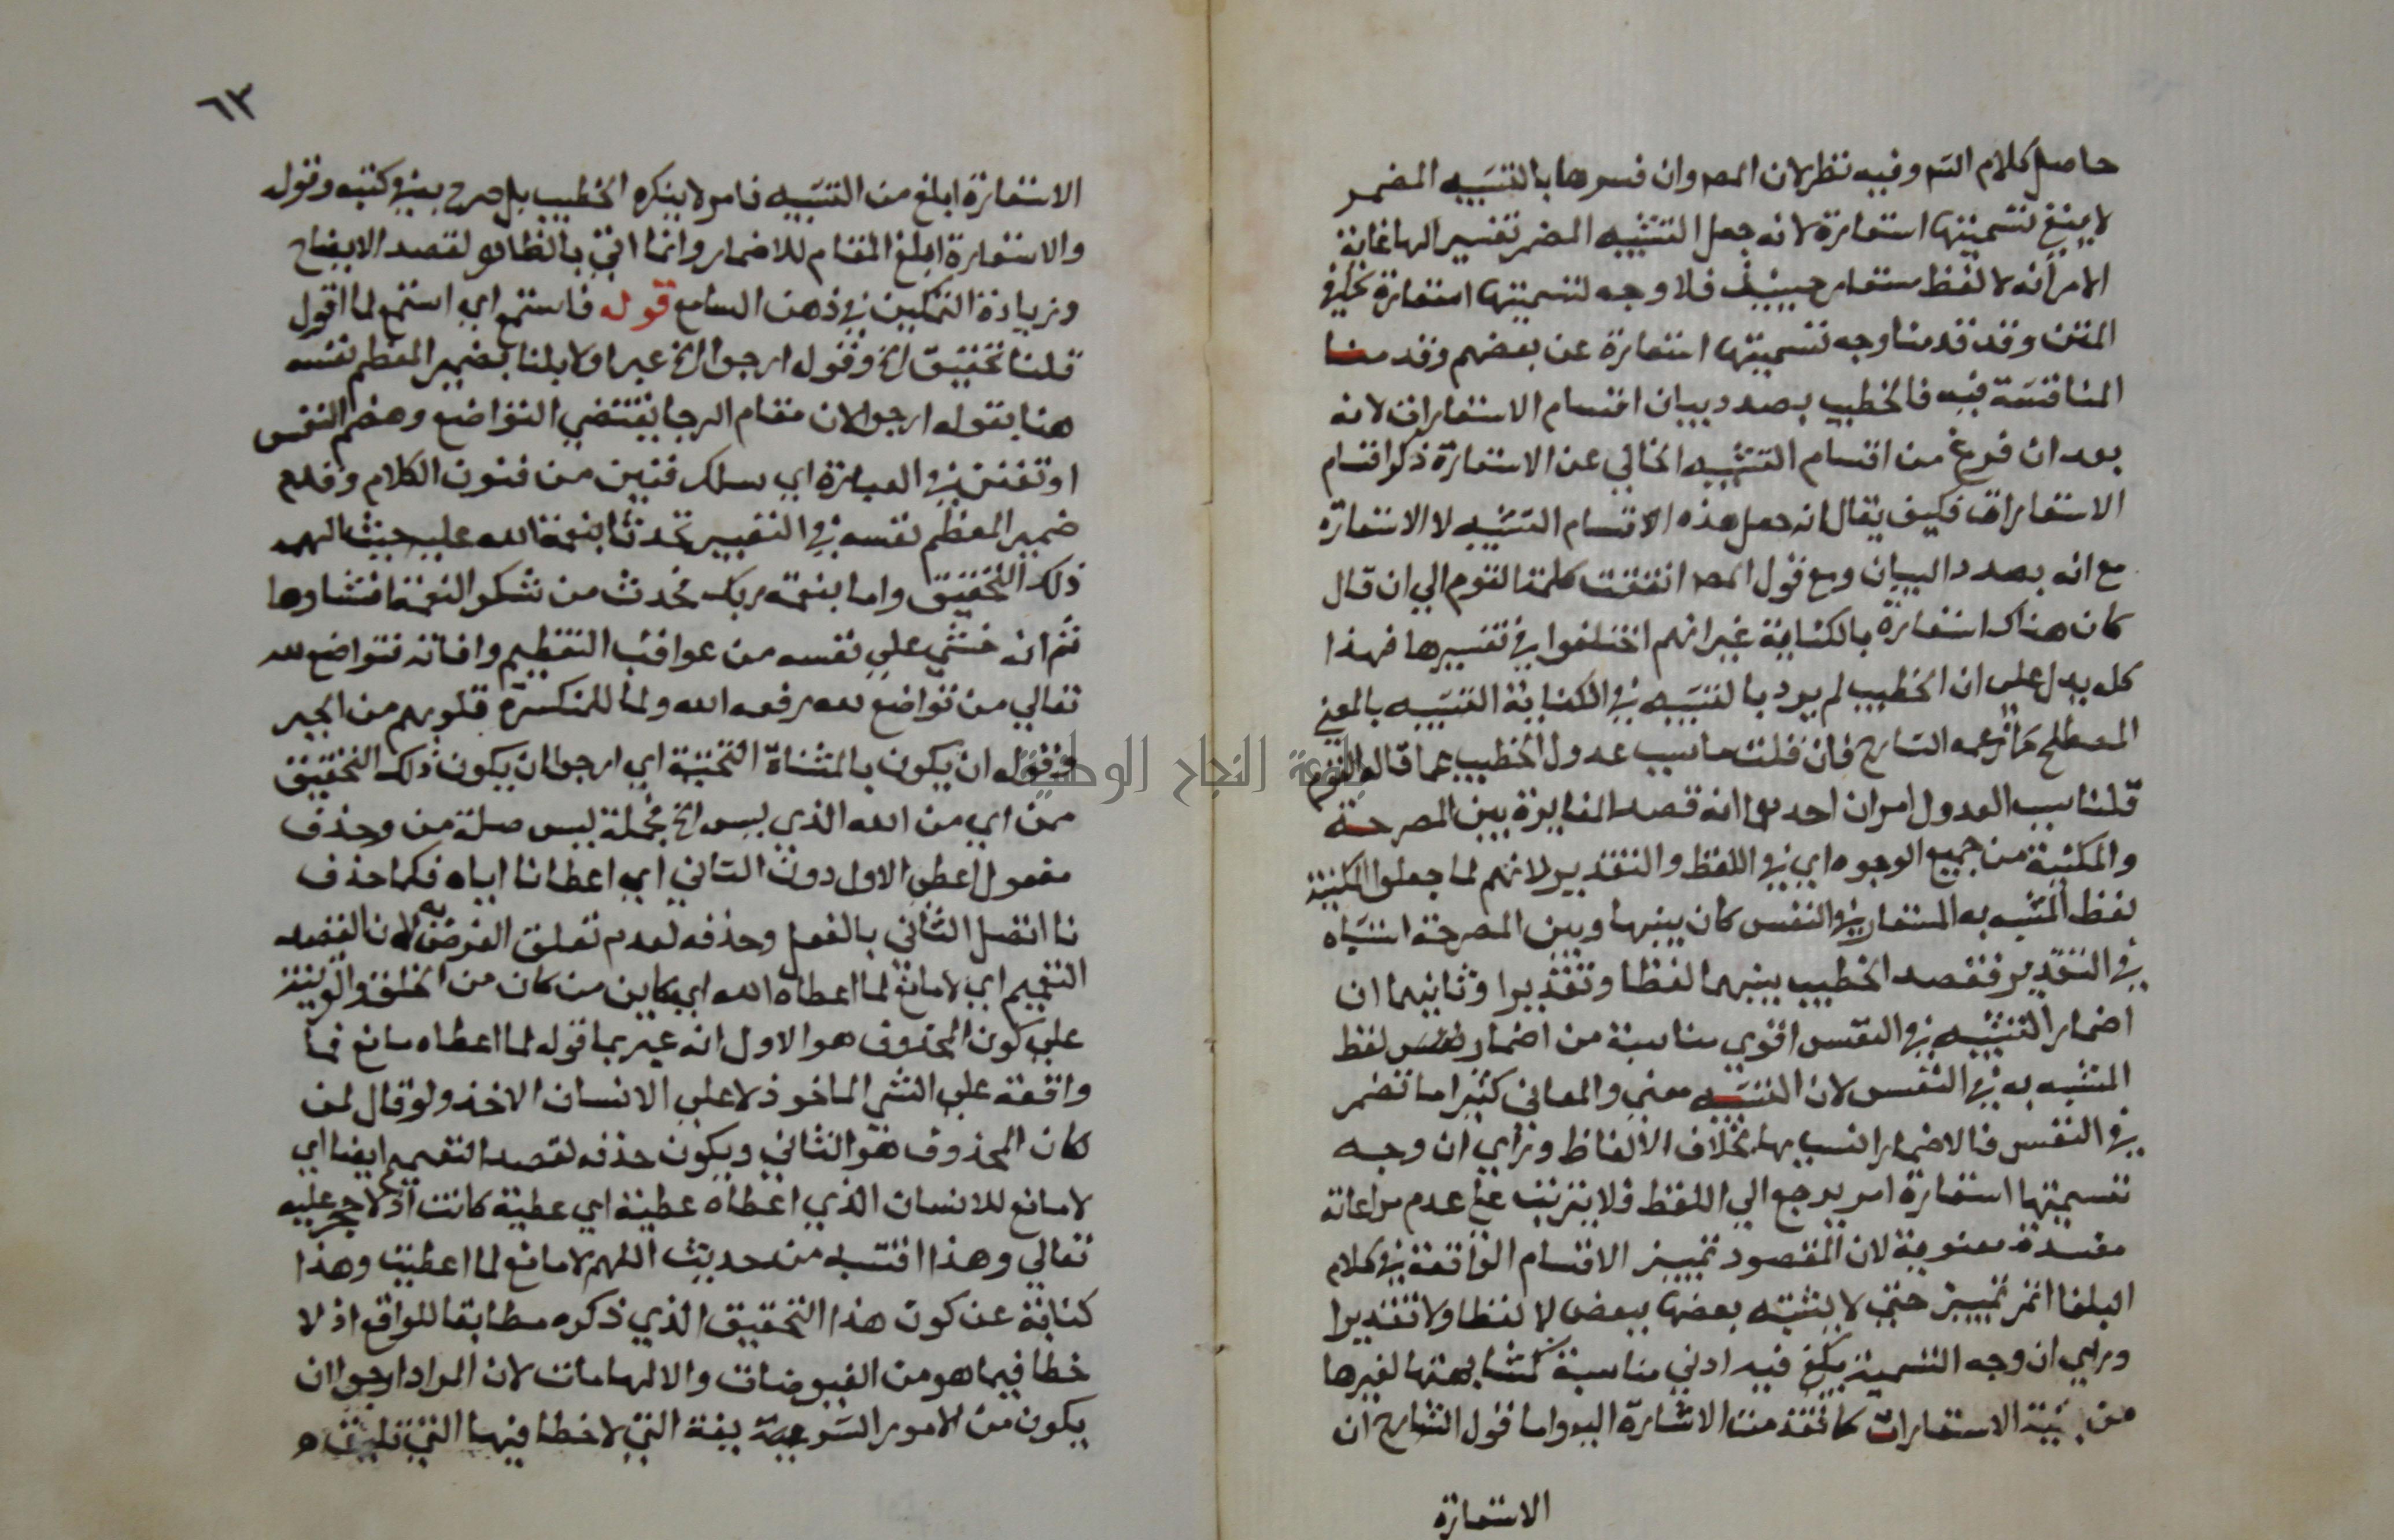 حاصل كلام الشم وفيه نظر لان المص وان فسرها بالتشبيه المضمر
لا ينبغي تسميتها استعارة لانه جعل التشبيه المضمر تفسيرالها غاية
الامر انه لا لفظ مستعار حينئذ فلا وجه لتسميتها استعارة
المتن وقد قدمنا وجه تسميتها استعارة عن بعضهم وقدمنا
المناقشة فيه فالخطيب بصدد بيان اقسام الاستعارات لانه
بعد ان فرغ من اقسام التشبيه الخالي عن الاستعارة ذكر اقسام
الاستعارات فكيف يقال انه جعل هذه الاقسام التشبيه لا الاستعارة
مع انه بصدد البيان ومع قول المص اتفقت كلمة القوم الي ان قال
كان هناك استعارة بالكناية غير انهم اختلفوا في تفسيرها فهذا
كله يدل علي ان الخطيب لم يرد بالتشبيه في الكناية التشبيه بالمعني
المصطلح كما زعمه الشارح فان قلت ما سبب عدول الخطيب عما قاله القوم
قلنا سبب العدول امران احدهما انه قصد المغايرة بين المصرحة
والمكنية من جميع الوجوه اي في اللفظ والتقدير لانهم لما جعلوا المكنية
لفظ المشبه به المستعار في النفس كان بينها وبين المصرحة اشتباه
في التقدير فقصد الخطيب بينهما لفظا وتقديرا وثانيهما ان
اضمار التشبيه في النفس اقوي مناسبة من اضمار لفظ
المشبه به في النفس لان التشبيه معني والمعاني كثيرا ما تضمر
في النفس فالاضمار انسب بها بخلاف الالفاظ وراي ان وجه
تسميتها استعارة امر يرجع الي اللفظ فلا يترتب علي عدم مراعاته
مفسدة معنوية لان المقصود تمييز الاقسام الواقعة في كلام
البلغا اتم تمييز حتي لا يشتبه بعضها ببعض لا لفظا ولا تقديرا
وراي ان وجه التسمية يكفي فيه ادني مناسبة كمشابهتها لغيرها
من بقية الاستعارات كما تقدمت الاشارة اليه واما قول الشارح ان
الاستعارة
٦٣
الاستعارة ابلغ من التشبيه فامر لا ينكره الخطيب بل صرح به في كتبه وقوله
والاستعارة ابلغ المقام للاضمار وانما اتي بالظاهر لقصد الايضاح
وزيادة التمكين في ذهن السامع قوله فاستمع اي استمع لما اقول
قلنا تحقيق الخ وقوله ارجوا الخ عبر اولا بلنا بضمير المعظم نفسه
هنا بقوله ارجو لان مقام الرجا يقتضي التواضع وهضم النفس
او تفنن في العبارة اي سلك فنين من فنون الكلام وقدم
ضمير المعظم نفسه في التعبير تحدثا بنعمة الله عليه حيث الهمه
ذلك التحقيق واما بنعمة ربك فحدث من شكر النعمة افشاوها
ثم انه خشي علي نفسه من عواقب التعظيم وافاته فتواضع لله
تعالي من تواضع لله رفعه الله ولما للمنكسرة قلوبهم من الجبر
وقوله ان يكون بالمثناة التحتية اي ارجوا ان يكون ذلك التحقيق
ممن اي من الله الذي ليس الخ فجملة ليس صلة من وحذف
مفعول اعطي الاول دون الثاني اي اعطانا اياه فكما حذف
نا اتصل الثاني بالفعل وحذفه لعدم تعلق الغرض به لان القصد
التعميم اي لا مانع لما اعطاه الله اي كاين من كان من الخلق والقرينة
علي كون المحذوف هو الاول انه عبر بما قوله لما اعطاه مانع فما
واقعة علي الشي الماخوذ لا علي الانسان الاخذ ولو قال لمن
كان المحذوف هو الثاني ويكون حذفه لقصد التعميم ايضا اي
لا مانع للانسان الذي اعطاه عطية اي عطية كانت اذ لا حجر عليه
تعالي وهذا اقتبسه من حديث اللهم لا مانع لما اعطيت وهذا
كناية عن كون هذا التحقيق الذي ذكره مطابقا للواقع اذ لا
خطا فيما هو من الفيوضات والالهامات لان المراد ارجوا ان
يكون من الامور الشرعية التي لا خطا فيها التي
جامعة النجاح الوطنية